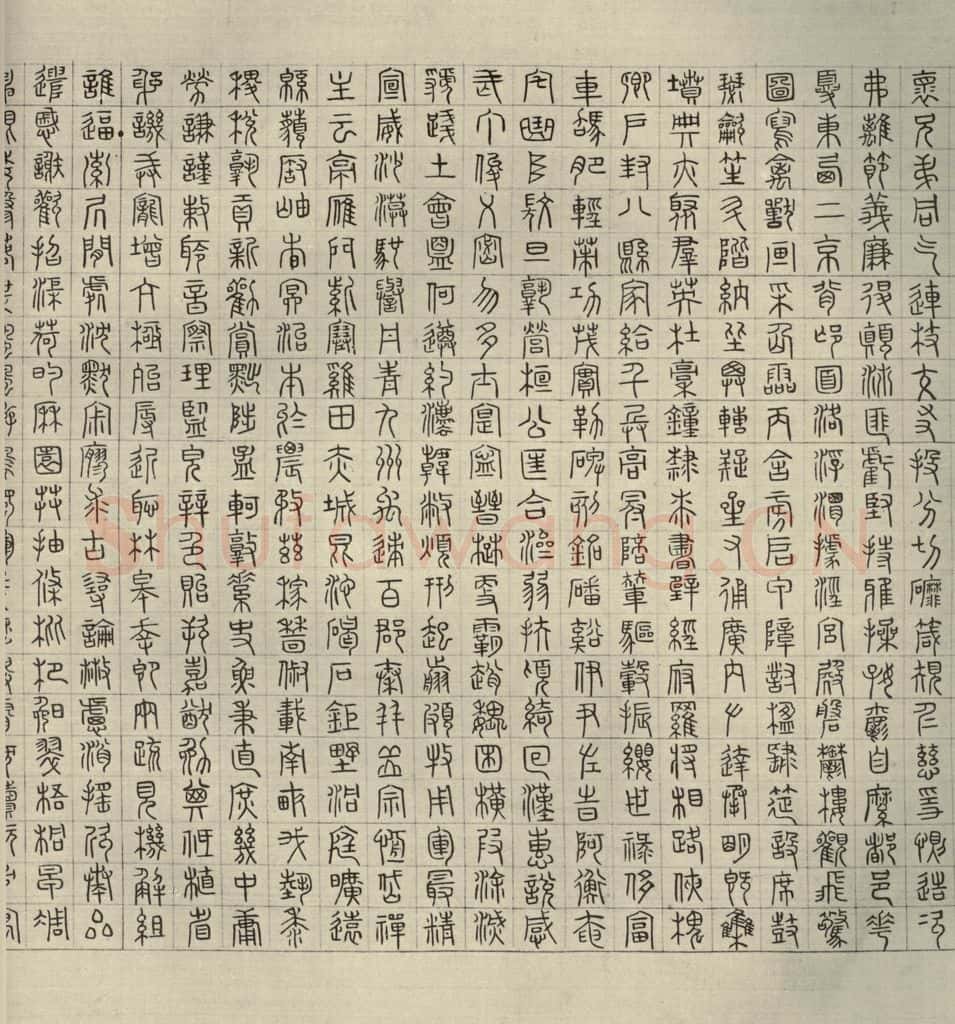 懷兄弟同气連枝交友投分切磨箴規仁慈隱惻造次
弗離節義廉退顛沛匪虧堅持雅操好爵自縻都邑華
夏東西二京背邙面洛浮渭據涇宮殿盤鬱樓觀飛驚
圖寫禽獸画采仙靈丙舍旁启甲帳對楹肆筵設席鼓
瑟龡笙升階納陛弁轉疑星右通廣内左達承明既集
墳典亦聚群英杜稾鍾隸漆書壁經府羅將相路俠槐
卿戶封八縣家給千兵高冠陪輦驅轂振纓世祿侈富
車駕肥輕策功茂實勒碑刻銘磻溪伊尹佐時阿衡奄
宅曲阜微旦孰營桓公匡合濟弱扶傾綺回漢惠說感
武丁俊乂密勿多士寔寧晉楚更霸趙魏困橫假途滅
虢踐土會盟何遵約法韓弊煩刑起翦頗牧用軍最精
宣威沙漠馳譽丹青九州禹跡百郡秦并岳宗恒岱禪
主云亭雁門紫塞雞田赤城昆池碣石鉅野洞庭曠遠
綿邈巖岫杳冥治本於農務茲稼穡俶載南畝我藝黍
稷稅熟貢新勸賞黜陟孟軻敦素史魚秉直庶幾中庸
勞謙謹敕聆音察理鑑皃辨色貽厥嘉猷勉其祗植省
躬譏誡寵增抗極殆辱近恥林皋幸即兩疏見機解組
誰逼索居閒處沈默寂寥求古尋論散慮逍遙欣奏累
遣慼謝歡招渠荷的歷園莽抽條枇杷晚翠梧桐早凋
Shufawang.CN